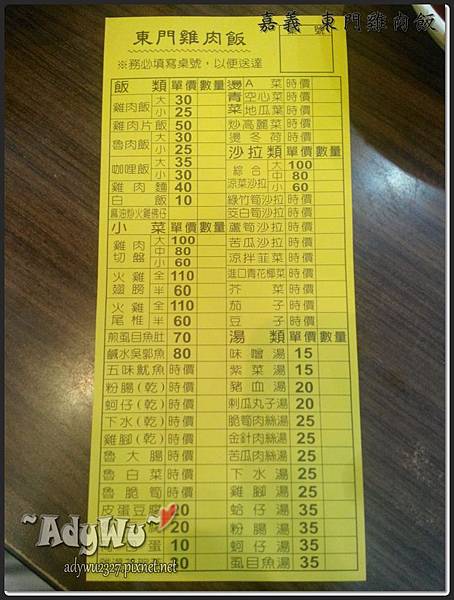 嘉義 東門雞肉飯
東門雞肉飯 號
※務必填寫桌號，以便送達
飯類 單價 數量
雞肉飯 大 30
小 25
雞肉片飯 50
魯肉飯 大 30
小 25
咖哩飯 大 35
小 30
雞肉麵 40
白飯 10
麻油炒火雞佛仔 時價
小菜 單價 數量
雞肉切盤 大 100
中 80
小 60
火雞翅膀 全 110
半 60
火雞尾椎 全 110
半 60
煎虱目魚肚 70
鹹水吳郭魚 80
五味魷魚 時價
粉腸(乾) 時價
蚵仔(乾) 時價
下水(乾) 時價
雞腳(乾) 時價
魯大腸 時價
魯白菜 時價
魯脆筍 時價
皮蛋豆腐 20
20
蛋 10
燙青菜 A菜 時價
空心菜 時價
地瓜葉 時價
炒高麗菜 時價
燙冬荷 時價
沙拉類 單價 數量
綜合涼菜沙拉 大 100
中 80
小 60
綠竹筍沙拉 時價
茭白筍沙拉 時價
蘆筍沙拉 時價
苦瓜沙拉 時價
涼拌韭菜 時價
進口青花椰菜 時價
芥菜 時價
茄子 時價
豆子 時價
湯類 單價 數量
味噌湯 15
紫菜湯 15
豬血湯 20
刺瓜丸子湯 20
脆筍肉絲湯 25
金針肉絲湯 25
苦瓜肉絲湯 25
下水湯 25
雞腳湯 25
蛤仔湯 35
粉腸湯 35
蚵仔湯 35
虱目魚湯 35
~AdyWu~
adywu2327.pixnet.net